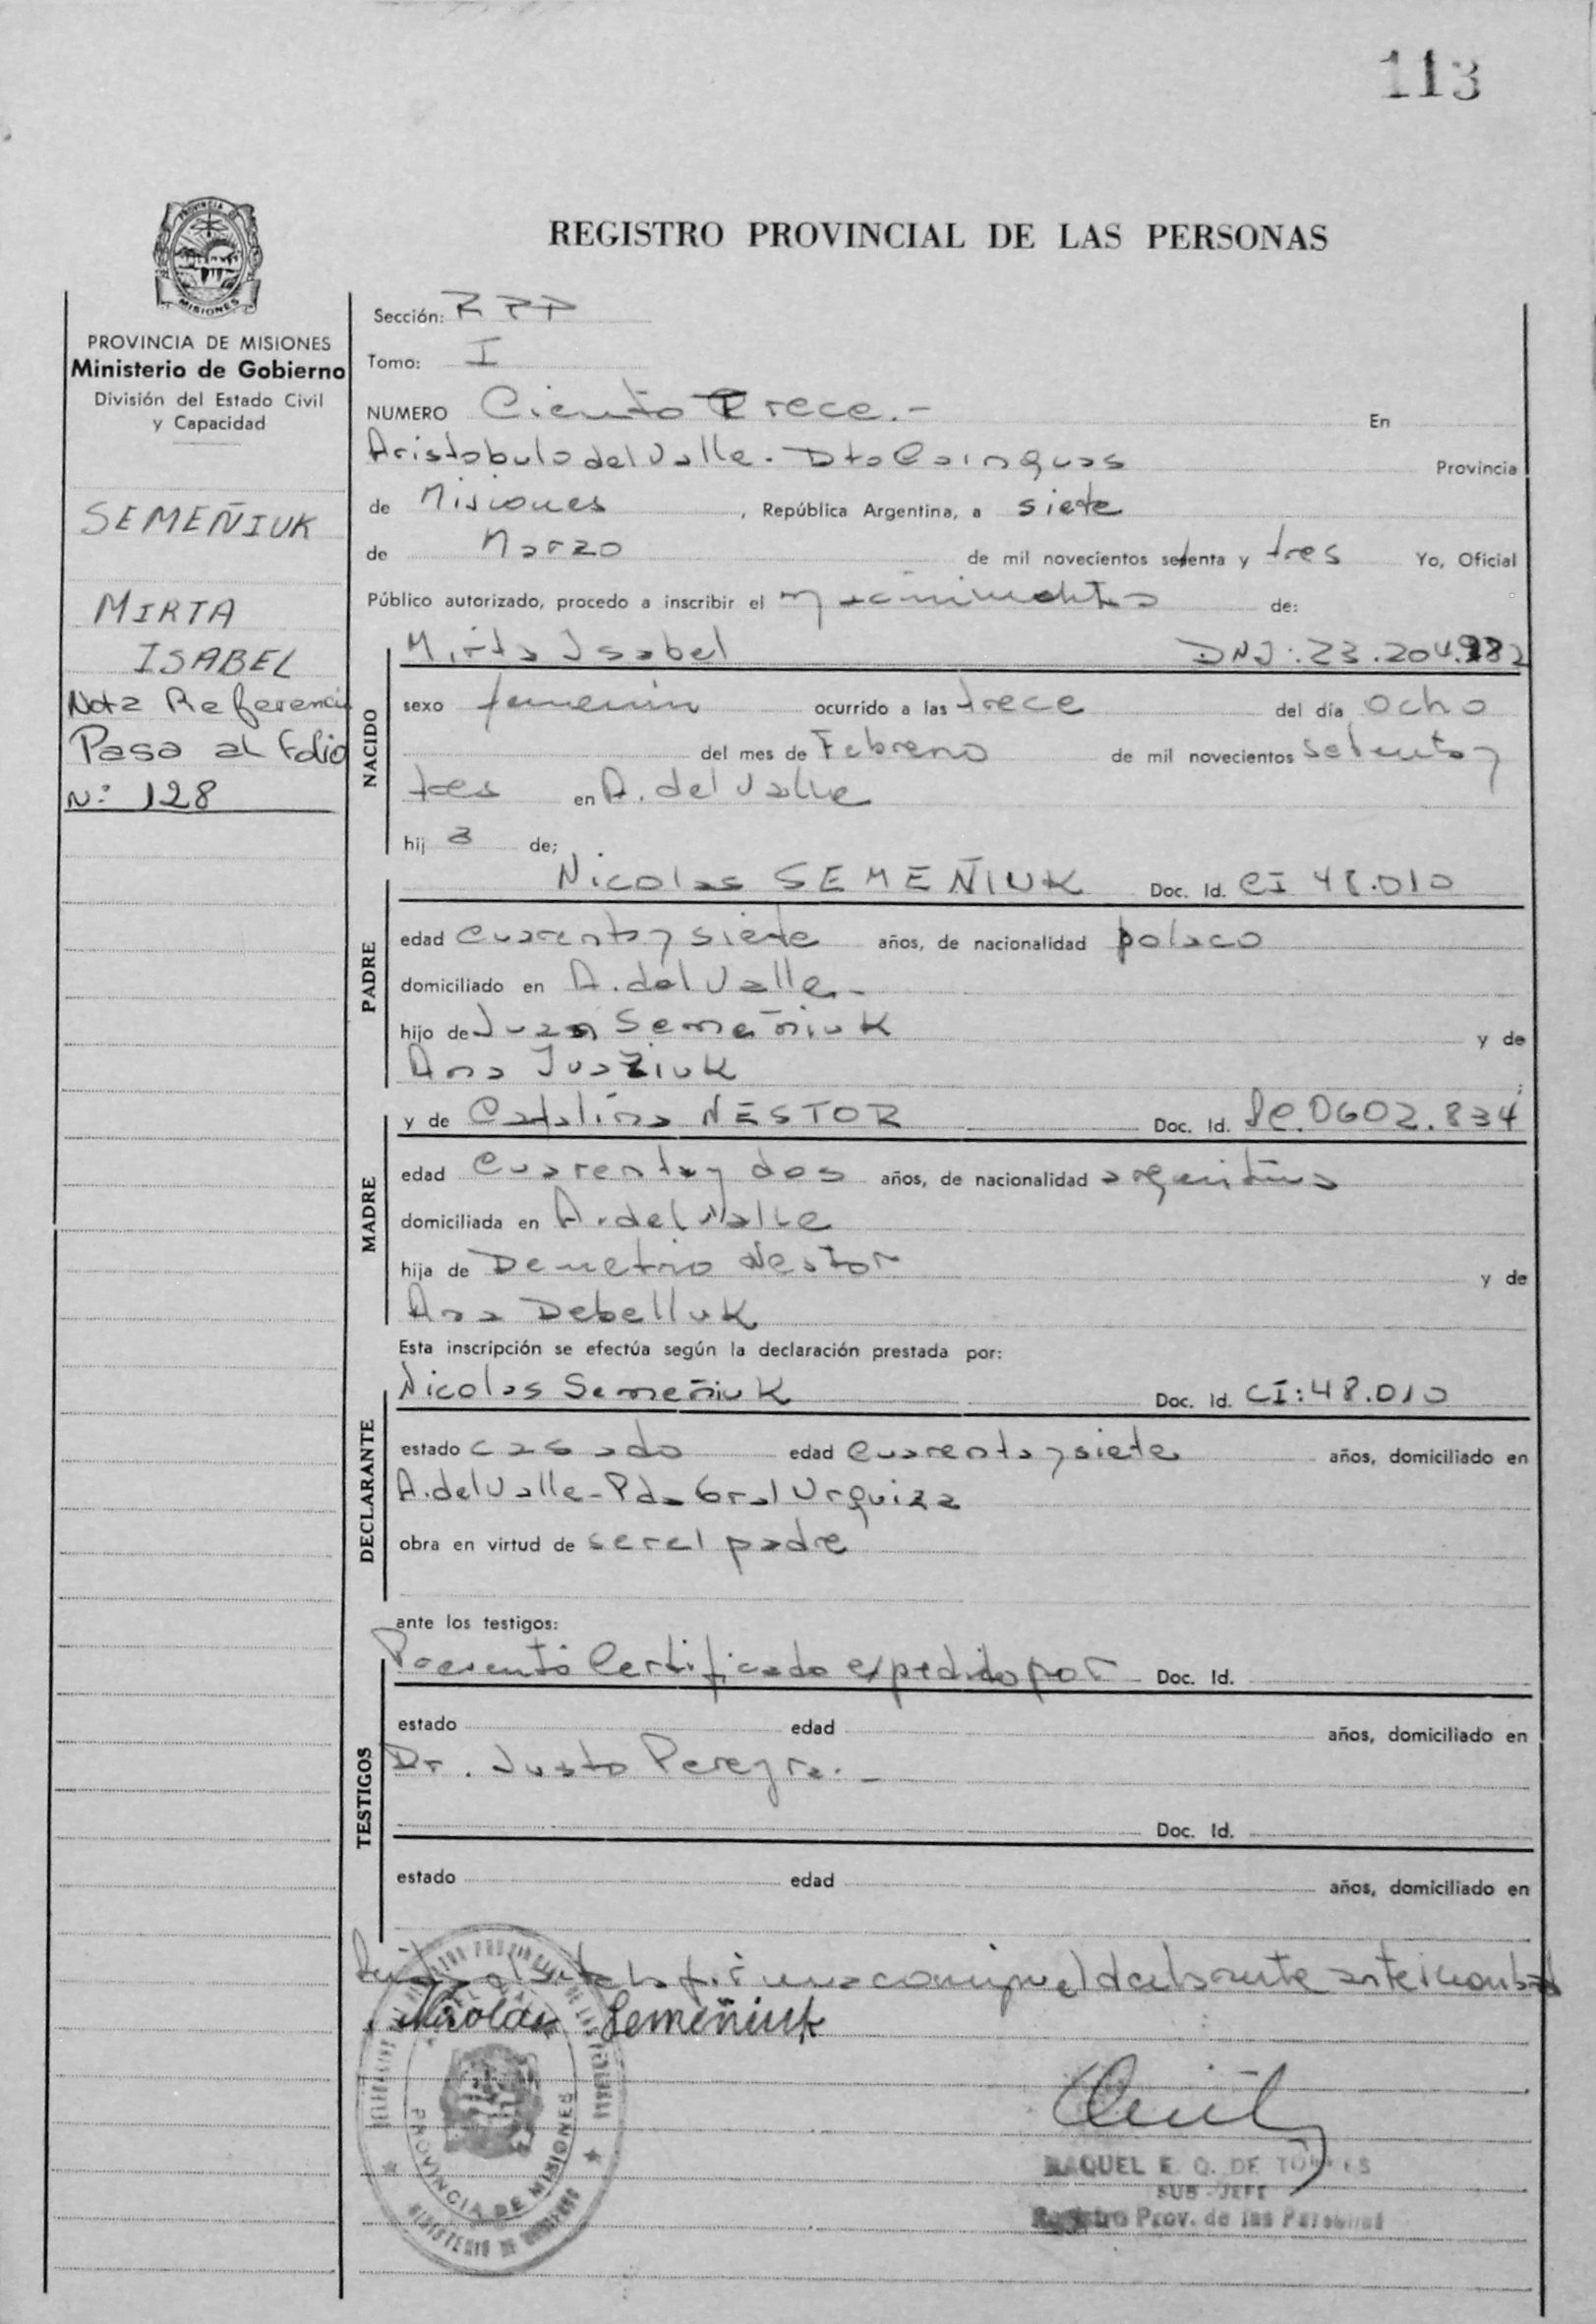 113
PROVINCIA DE
MISIONES
REGISTRO PROVINCIAL DE LAS PERSONAS
PROVINCIA DE MISIONES
Ministerio de Gobierno
División del Estado Civil
y Capacidad
SEMEÑIUK
MIRTA
ISABEL
Nota Referencia
Pasa al Folio
Nº 128
Sección: RPP
Tomo: I
NUMERO Ciento Trece.- En
Aristobulo del Valle. Dto Cainguas Provincia
de Misiones, República Argentina, a siete
de Marzo de mil novecientos setenta y tres Yo, Oficial
Público autorizado, procedo a inscribir el nacimiento de:
NACIDO
Mirta Isabel DNI: 23.204.982
sexo femenin ocurrido a las trece del día ocho
del mes de Febrero de mil novecientos setenta y
tres en A. del Valle
hij a de;
PADRE
Nicolas SEMEÑIUK Doc. Id. CI 48.010
edad cuarenta y siete años, de nacionalidad polaco
domiciliado en A. del Valle.-
hijo de Juan Semeñiuk y de
Ana
MADRE
y de Catalina NESTOR Doc. Id. 0602.834
edad cuarenta y dos años, de nacionalidad argentina
domiciliada en A. del Valle
hija de Demetrio Nestor y de
Ana Debelluk
Esta inscripción se efectúa según la declaración prestada por:
DECLARANTE
Nicolas Semeñiuk Doc. Id. CI: 48.010
estado casado edad cuarenta y siete años, domiciliado en
A. del Valle - Pda Gral Urquiza
obra en virtud de ser el padre
ante los testigos:
TESTIGOS
Presentó Certificado expedido por Doc. Id.
estado edad años, domiciliado en
Dr. Justo Pereyra.-
Doc. Id.
estado edad años, domiciliado en
el acta la firma conmigo el declarante
Nicolas Semeñiuk
PROVINCIA DE MISIONES
MINISTERIO DE GOBIERNO
RAQUEL E. Q. DE TORRES
SUB-JEFE
Registro Prov. de las Personas